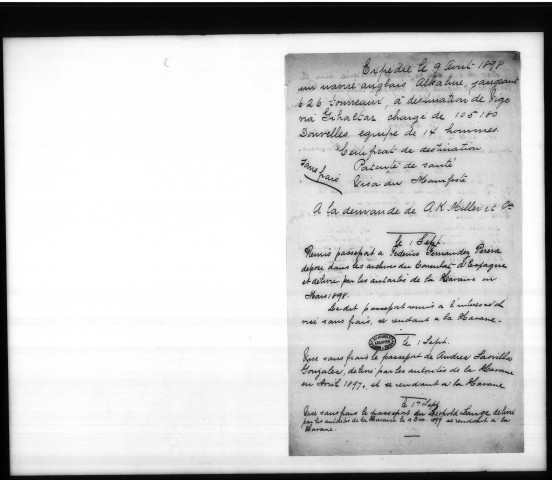 Expédié le 9 Avril 1898
un navire anglais Alkaline, jaugeant
626 tonneaux, à destination de Vigo
via Gibraltar chargé de 105180
Douvelles, equipe de 14 hommes.
Certificat de destination
sans frais Patente de santé
Visa du Manifeste
A la demande de A.K. Miller et Co
le 1 Sept.
Remis passeport a Federico Fernandez Perera
depose dans les archives du Consulat d'Espagne
et delivré par les autorités de la Havane en
Mars 1898.
Le dit passeport remis a l'interessé
sans frais, se rendant a la Havane.
le 1 Sept.
Vise sans frais le passeport de Andrea
Gonzalez, delivré par les autorités de la Havane
en Avril 1897, et se rendant a la Havane
le 1er Sept
Vise sans frais le passeport de Leopold Lange delivré
par les autorités de la Havane le se rendant a la
Havane.